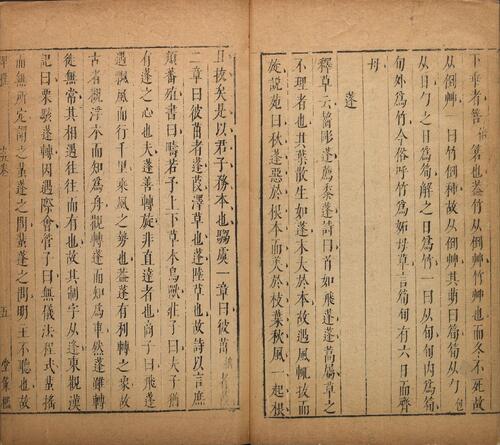 下垂者箁福箬也蓋竹从倒艸竹艸也而冬不死故
从倒艸一曰竹倒種故从倒艸其萌曰筍筍从勹包
从日勹之日爲筍解之日爲竹一曰从旬旬內爲筍
旬外爲竹今俗呼竹爲妬母草言筍旬有六日而齊
母
蓬
釋草云齧彫蓬薦黍蓬詩曰首如飛蓬蓬蒿屬草之
不理者也其葉散生如蓬末大於本故遇風輒拔而
旋説苑曰秋蓬惡於根本而美於枝葉秋風一起根
且拔矣是以君子務本也騶虞一章曰彼茁
二章曰彼茁者蓬葭澤草也蓬陸草也故詩以言庶
類蕃殖書曰疇若予上下草木鳥獸莊子曰夫子猶
有蓬之心也夫蓬善轉旋非直達者也商子曰飛蓬
遇飄風而行千里乘風之勢也蓋蓬有利轉之象故
古者觀浮木而知爲舟觀轉蓬而知爲車然蓬雖轉
徙無常其相遇往往而有也故其制字从逢東觀漢
記曰粟駭蓬轉因遇際會管子曰無儀法程式蜚搖
而無所定謂之蜚蓬之問蜚蓬之問明王不聽也故
五 堂策檻